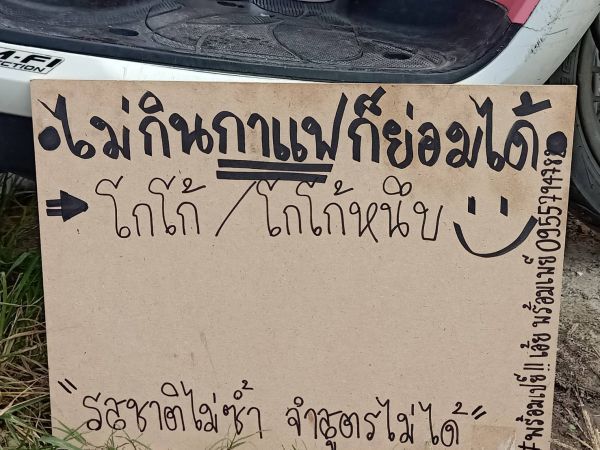 M-FI
CTION
•ไม่กินกาแฟก็ย่อมได้•
โกโก้ / โกโก้หนึบ
"รสชาติไม่ซ้ำ จำสูตรไม่ได้"
#พร้อมเปย์!! เอ้ย พร้อมเพย์